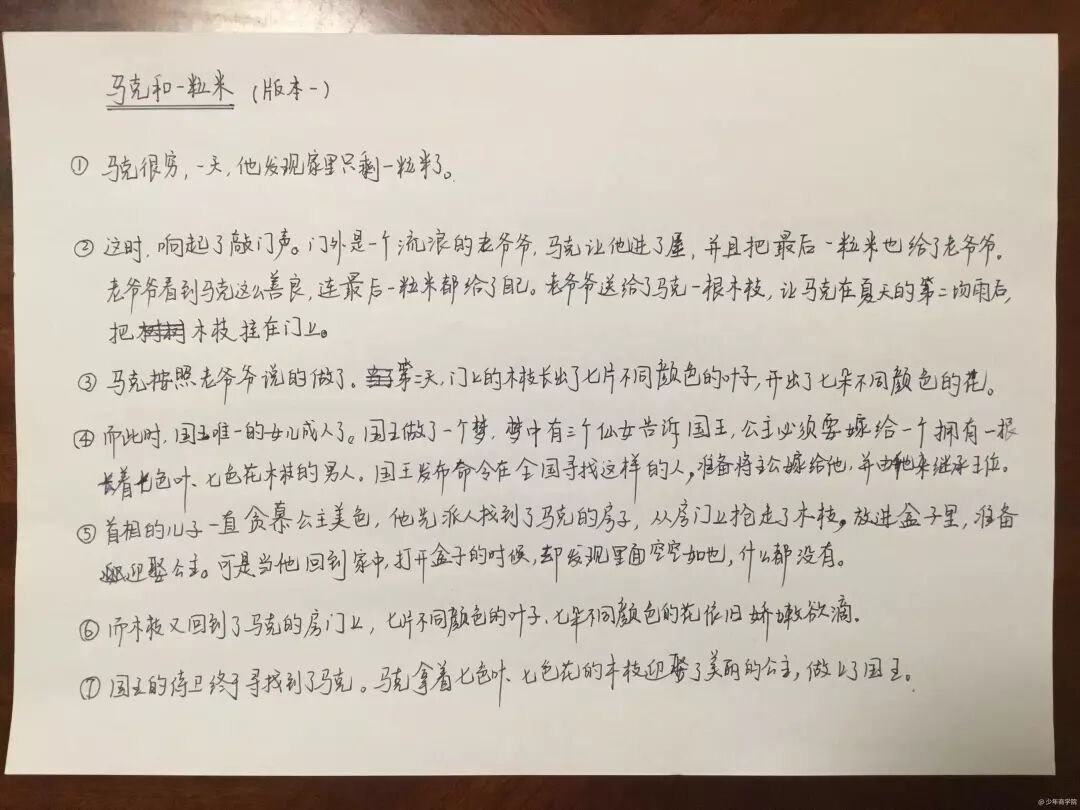 马克和一粒米 (版本一)
① 马克很穷，一天，他发现家里只剩一粒米了。
② 这时，响起了敲门声。门外是一个流浪的老爷爷，马克让他进了屋，并且把最后一粒米也给了老爷爷。
老爷爷看到马克这么善良，连最后一粒米都给了自己。老爷爷送给了马克一根木枝，让马克在夏天的第二场雨后，
把木枝挂在门上。
③ 马克按照老爷爷说的做了。第二天，门上的木枝长出了七片不同颜色的叶子，开出了七朵不同颜色的花。
④ 而此时，国王唯一的女儿成人了。国王做了一个梦，梦中有三个仙女告诉国王，公主必须要嫁给一个拥有一根
长着七色叶、七色花木枝的男人。国王发布命令在全国寻找这样的人，准备将公主嫁给他，并由他来继承王位。
⑤ 首相的儿子一直贪慕公主美色，他先派人找到了马克的房子，从房门上抢走了木枝。放进盒子里，准备
迎娶公主。可是当他回到家中，打开盒子的时候，却发现里面空空如也，什么都没有。
⑥ 而木枝又回到了马克的房门上，七片不同颜色的叶子、七朵不同颜色的花依旧娇嫩欲滴。
⑦ 国王的侍卫终于寻找到了马克。马克拿着七色叶、七色花的木枝迎娶了美丽的公主，做上了国王。
少年商学院